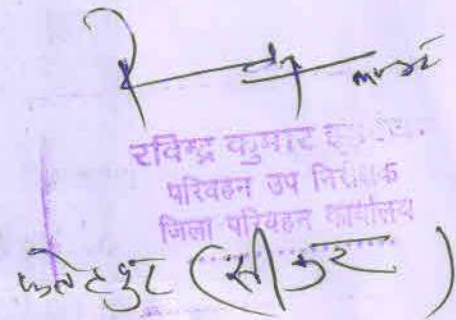 रविन्द्र कुमार
परिवहन उप निरीक्षक
जिला परिवहन कार्यालय
फतेहपुर (सीकर)